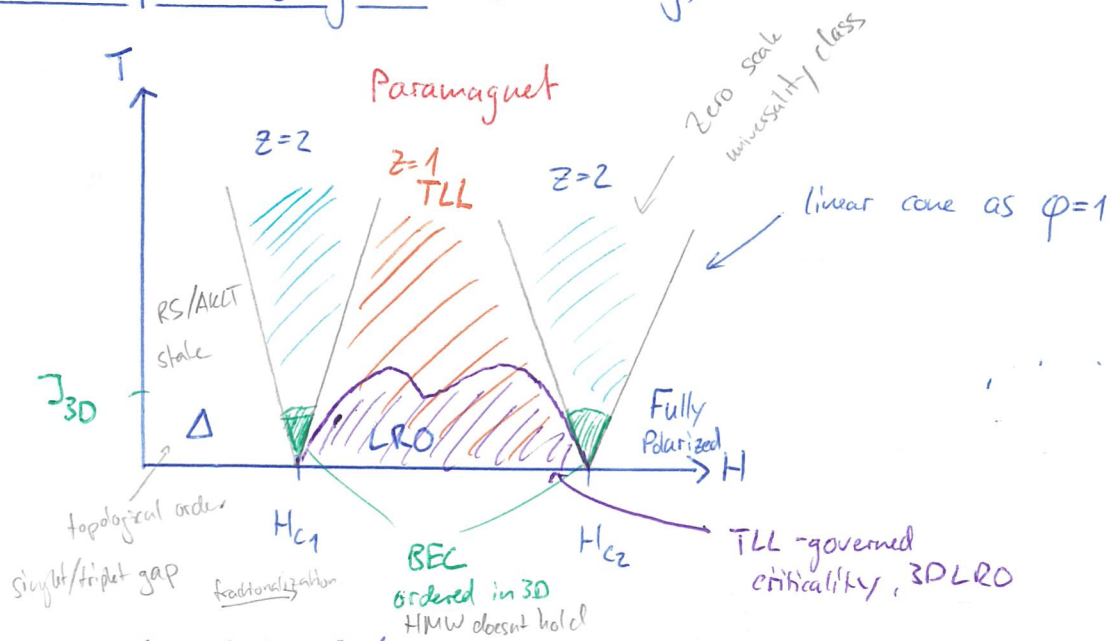 T
Paramagnet
zero scale
universality class
Z=2
Z=1
TLL
Z=2
linear cone as φ=1
RS/AKLT
state
J3D
Δ
LRO
Fully
Polarized
H
topological order
singlet/triplet gap
Hc1
fractionalization
BEC
ordered in 3D
HMW doesnt hold
Hc2
TLL-governed
criticality, 3D LRO